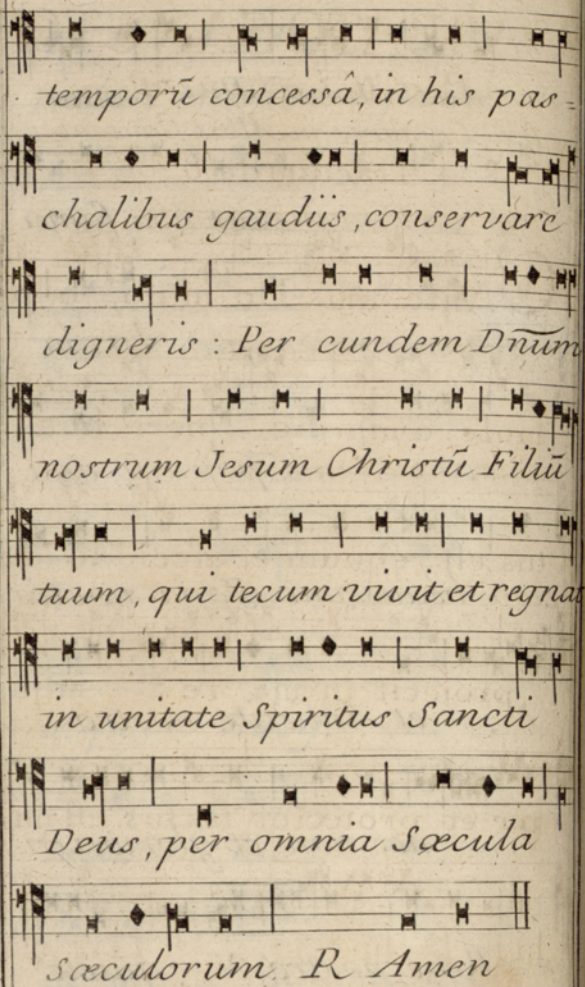 temporū concessâ, in his pas=
chalibus gaudiis, conservare
digneris : Per eundem Dn̄um
nostrum Jesum Christū Filiū
tuum, qui tecum vivit et regnat
in unitate Spiritus Sancti
Deus, per omnia Sæcula
sæculorum. R. Amen